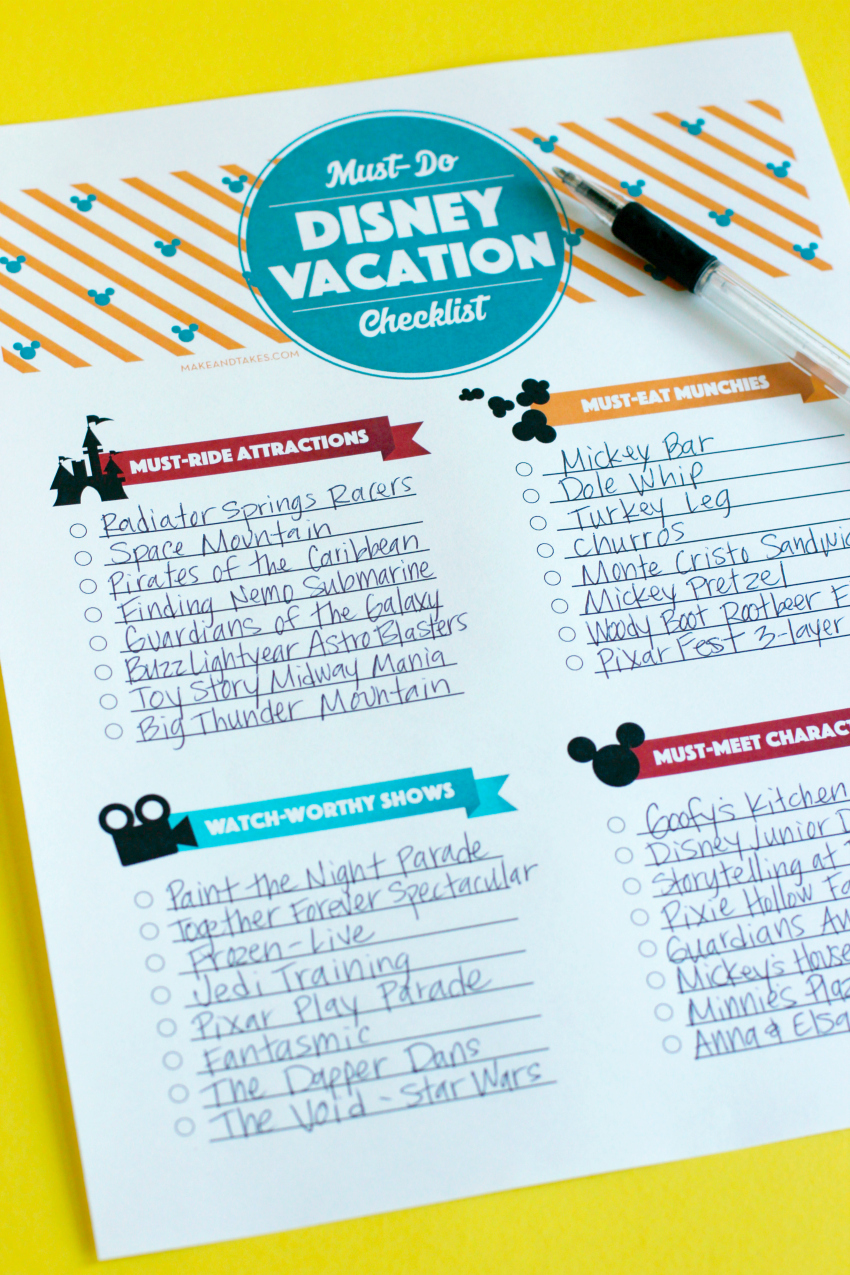 Must-Do
DISNEY
VACATION
Checklist
MAKEANDTAKES.COM
MUST-RIDE ATTRACTIONS
Radiator Springs Racers
Space Mountain
Pirates of the Caribbean
Finding Nemo Submarine
Guardians of the Galaxy
Buzz Lightyear Astro Blasters
Toy Story Midway Mania
Big Thunder Mountain
MUST-EAT MUNCHIES
Mickey Bar
Dole Whip
Turkey Leg
Churros
Monte Cristo
Mickey Pretzel
Woody Boot Rootbeer
Pixar Fest 3-layer
WATCH-WORTHY SHOWS
Paint the Night Parade
Together Forever Spectacular
Frozen-Live
Jedi Training
Pixar Play Parade
Fantasmic
The Dapper Dans
The Void - Star Wars
MUST-MEET
Goofy's Kitchen
Disney Junior
Storytelling at
Pixie Hollow
Guardians
Mickey's House
Minnie's
Anna & Elsa